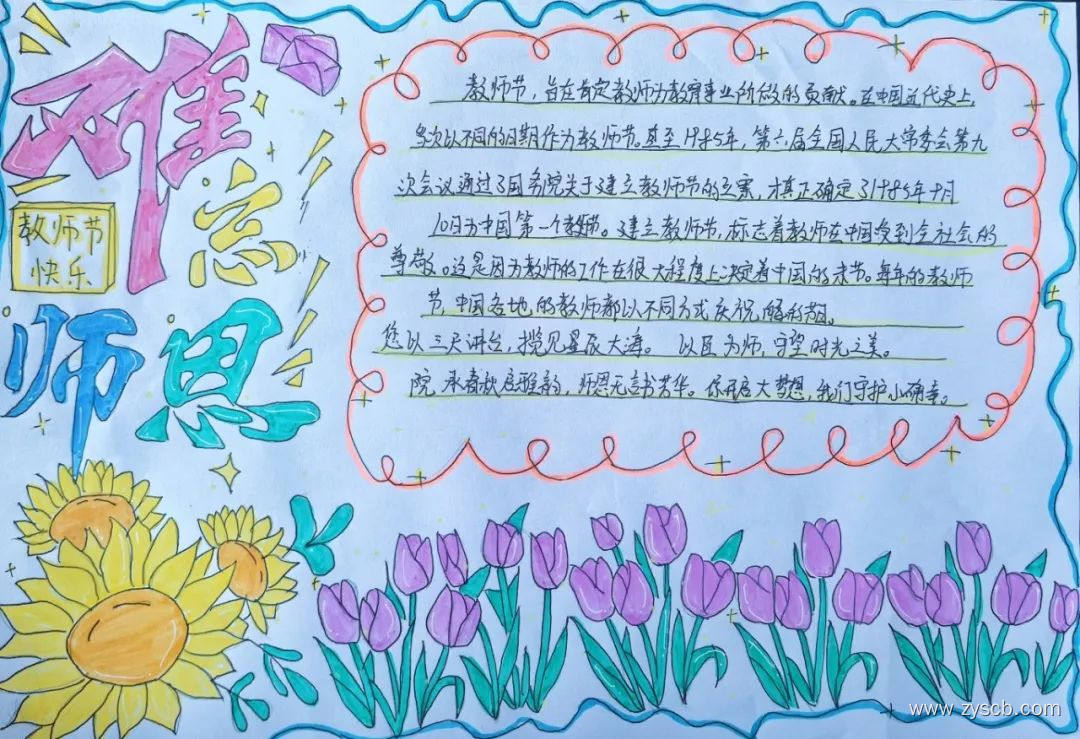 难忘
师恩
教师节
快乐
教师节，旨在肯定教师为教育事业所做的贡献。在中国近代史上，
多次以不同的日期作为教师节。直至1985年，第六届全国人民大常委会第九
次会议通过了国务院关于建立教师节的立案，才真正确定了1985年9月
10日为中国第一个教师节。建立教师节，标志着教师在中国受到全社会的
尊敬。这是因为教师的工作在很大程度上决定着中国的未来。每年的教师
节，中国各地的教师都以不同方式庆祝
您以三尺讲台，揽见星辰大海。以 为师，守望时光之美。
院，承春秋 雅韵，师恩无言 芳华。你 启大梦想，我们守护小确幸。
www.zyscb.com